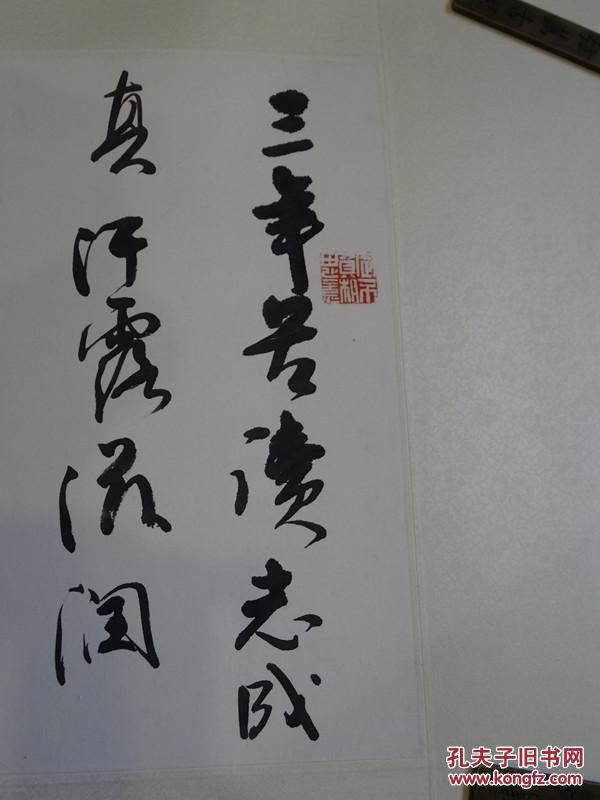 三年苦讀志成
真汗露滋润
孔夫子旧书网
www.kongfz.com